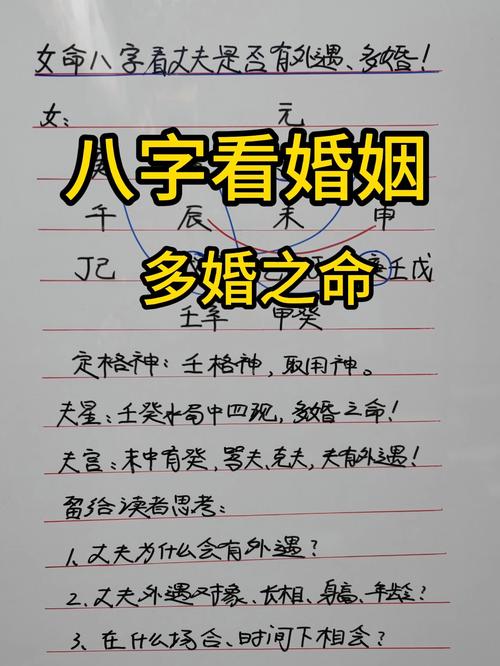 女命八字看丈夫是否有外遇、多婚！
女： 元
八字看婚姻
午 辰 未 申
丁己 壬戊
多婚之命
壬辛 甲癸
定格神：壬格神，取用神。
夫星：壬癸水局中四现，多婚之命！
夫宫：未中有癸，骂夫、克夫，夫有外遇！
留给读者思考：
1、丈夫为什么会有外遇？
2、丈夫外遇对象、长相、身高、年龄？
3、在什么场合、时间下相会？